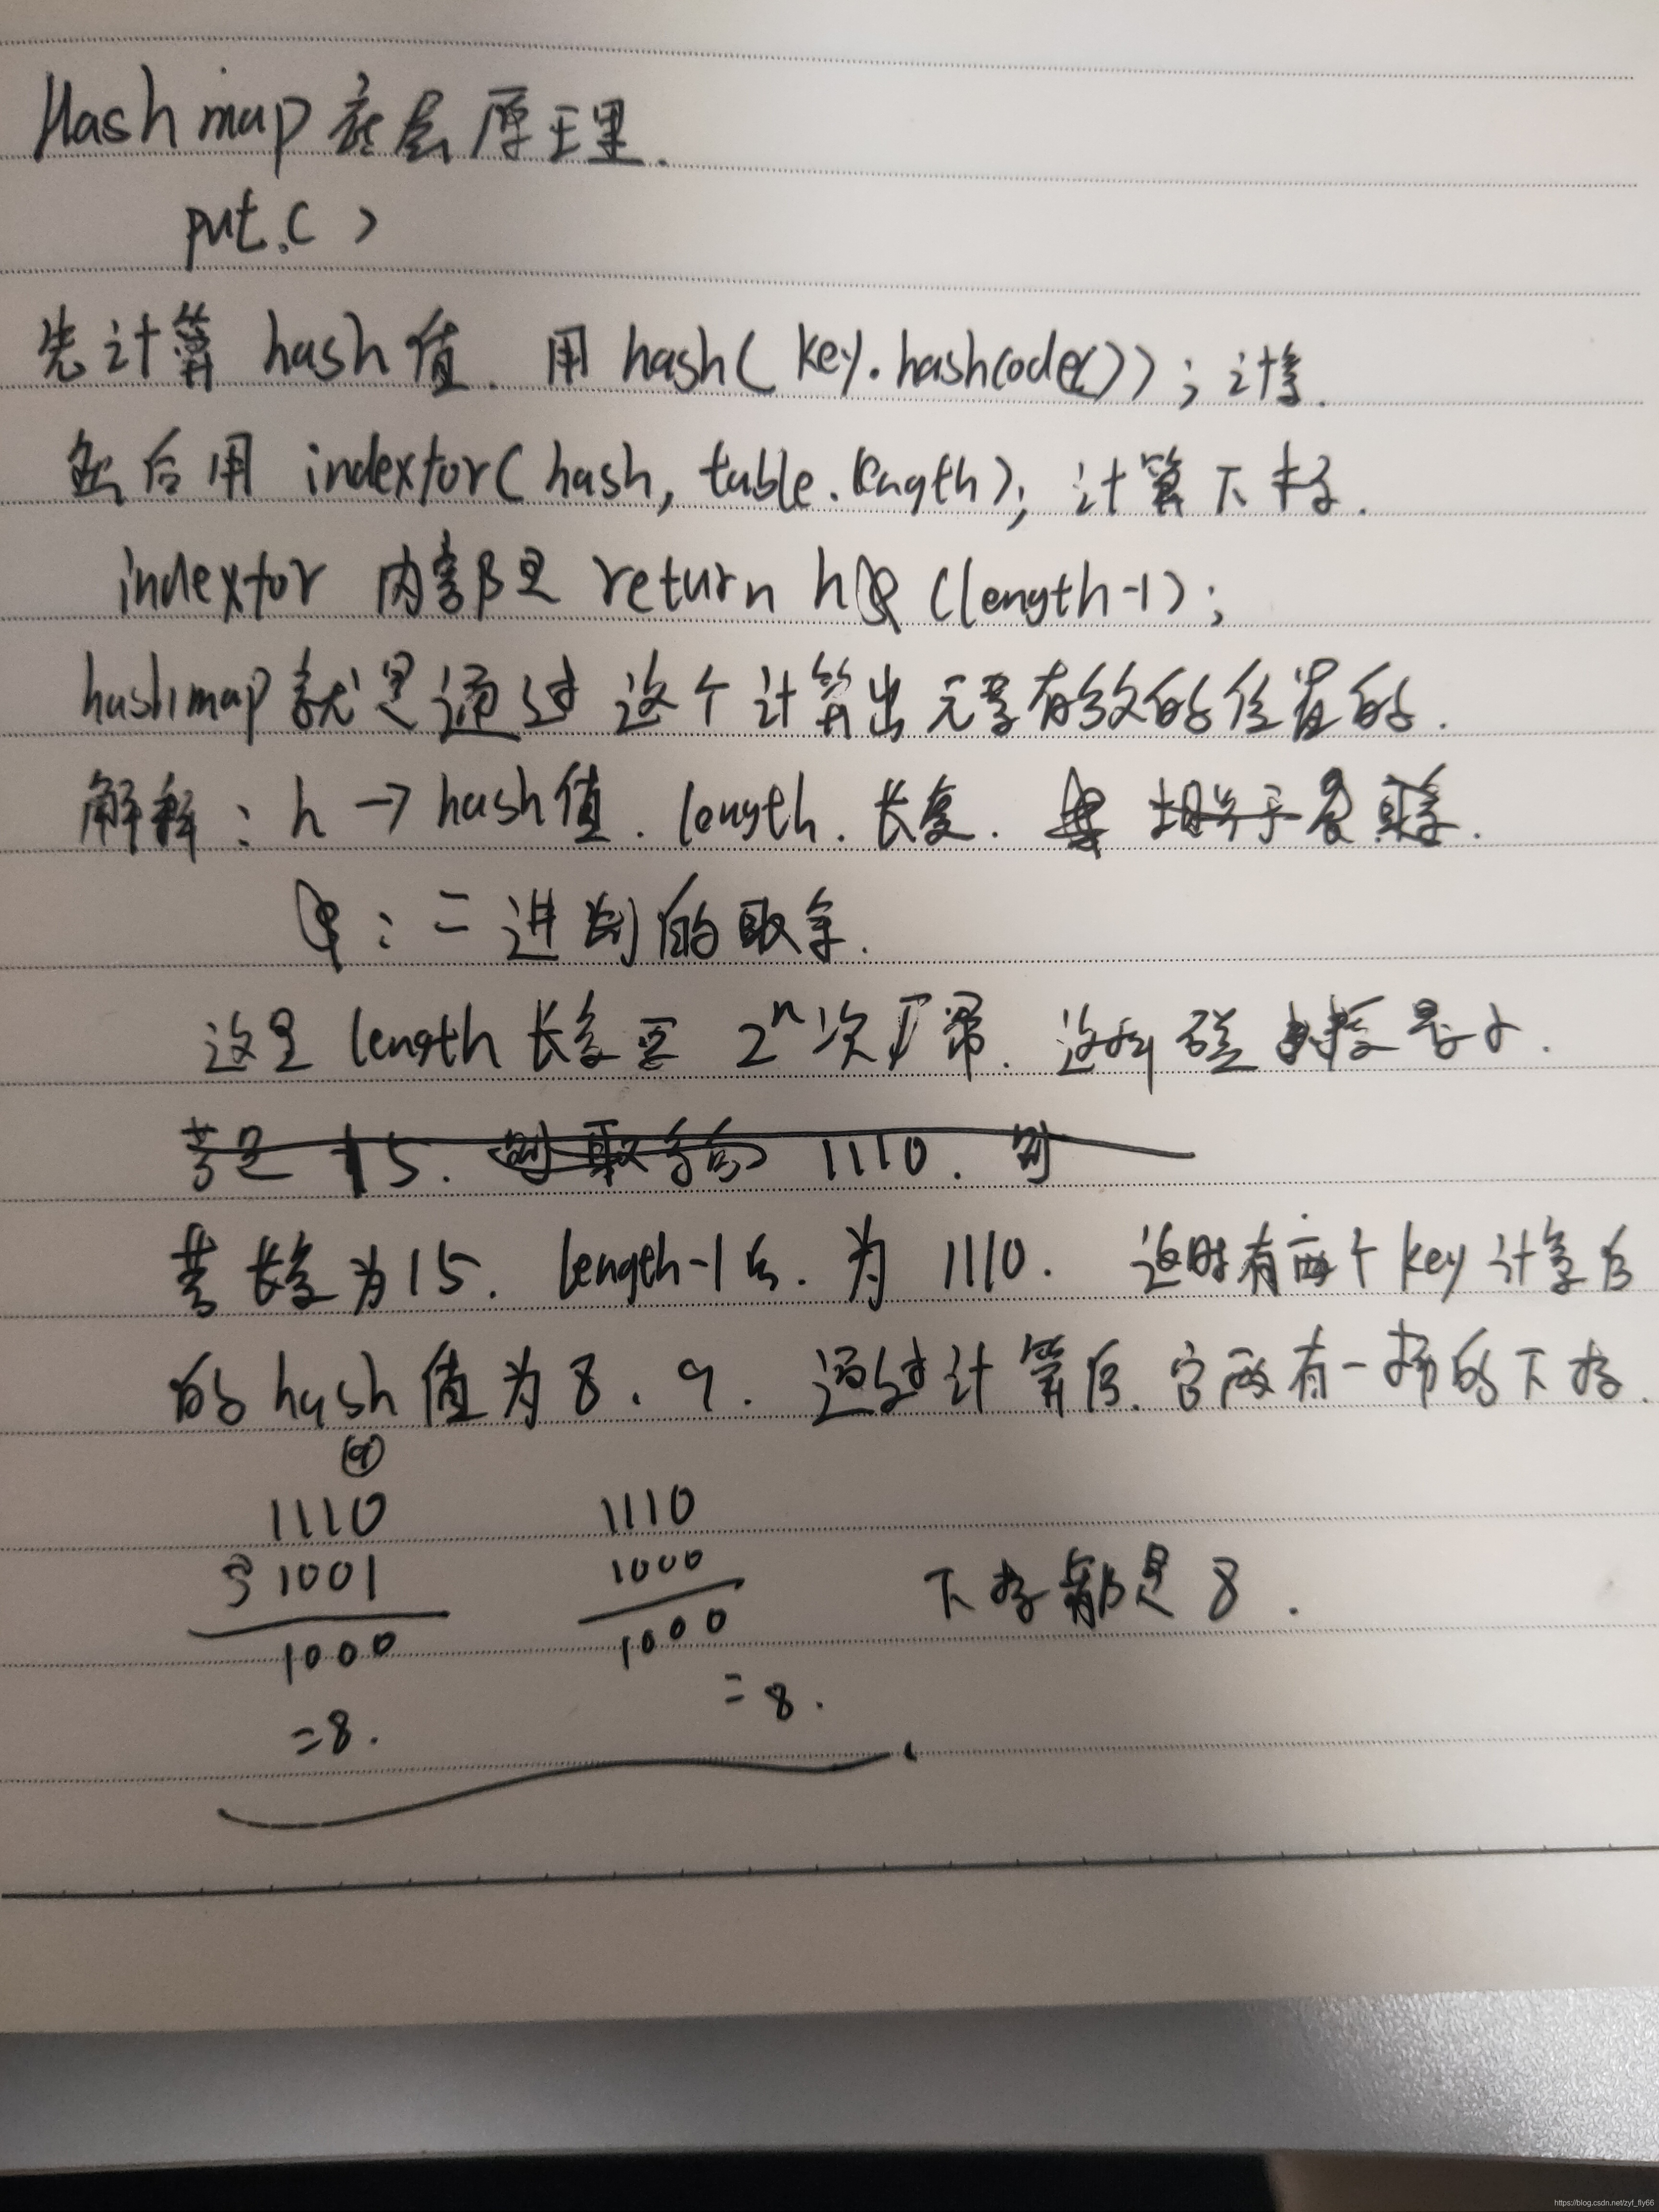 Hashmap 底层原理.
put.( )
先计算 hash值. 用 hash( key.hashcode()); 计算.
然后用 indextor( hash, table.length); 计算下标.
indextor 内部是 return h & (length-1);
hashmap 就是通过这个计算出元素有效的位置的.
解释: h → hash值. length. 长度. 相当于是取余.
&: 二进制的取余.
这里 length 长度要 2ⁿ次方幂. 这样碰撞最小.
若是 15. 1110. 则
若长度为15. length-1后. 为 1110. 这时有两个key计算后
的hash值为8、9. 通过计算后. 它两有一样的下标.
⑨
1110 1110
与 1001 1000
1000 1000
下标都是 8.
=8. =8.
https://blog.csdn.net/zyf_fly66